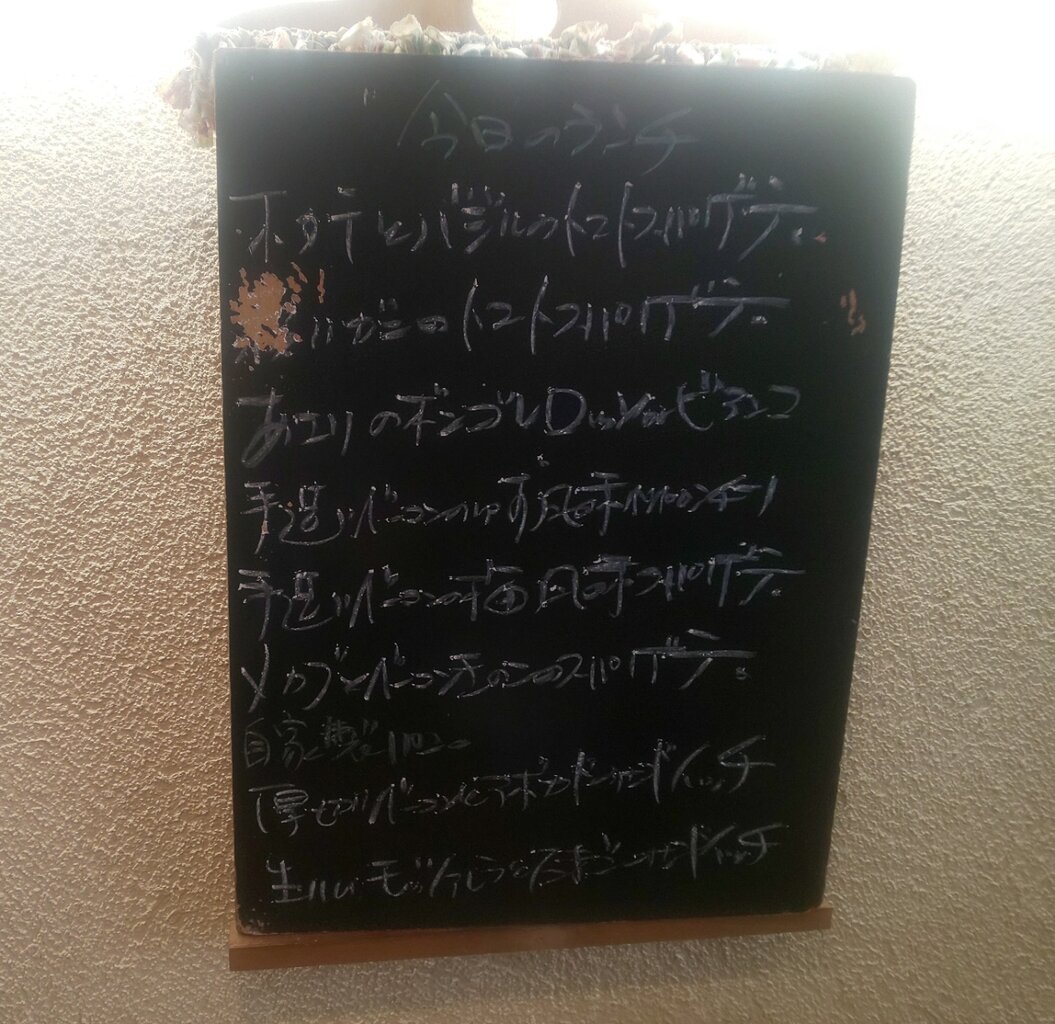 今日のランチ
ホタテとバジルのトマトスパゲティ
ガニのトマトスパゲティ
あさりのボンゴレ ビアンコ
手造りベーコンのゆず風味ペペロンチーノ
手造りベーコンの梅風味スパゲティ
メカブとベーコンのスパゲティ
自家製パン
厚切りベーコンとアボカドサンドイッチ
生ハム モッツァレラ サンドイッチ